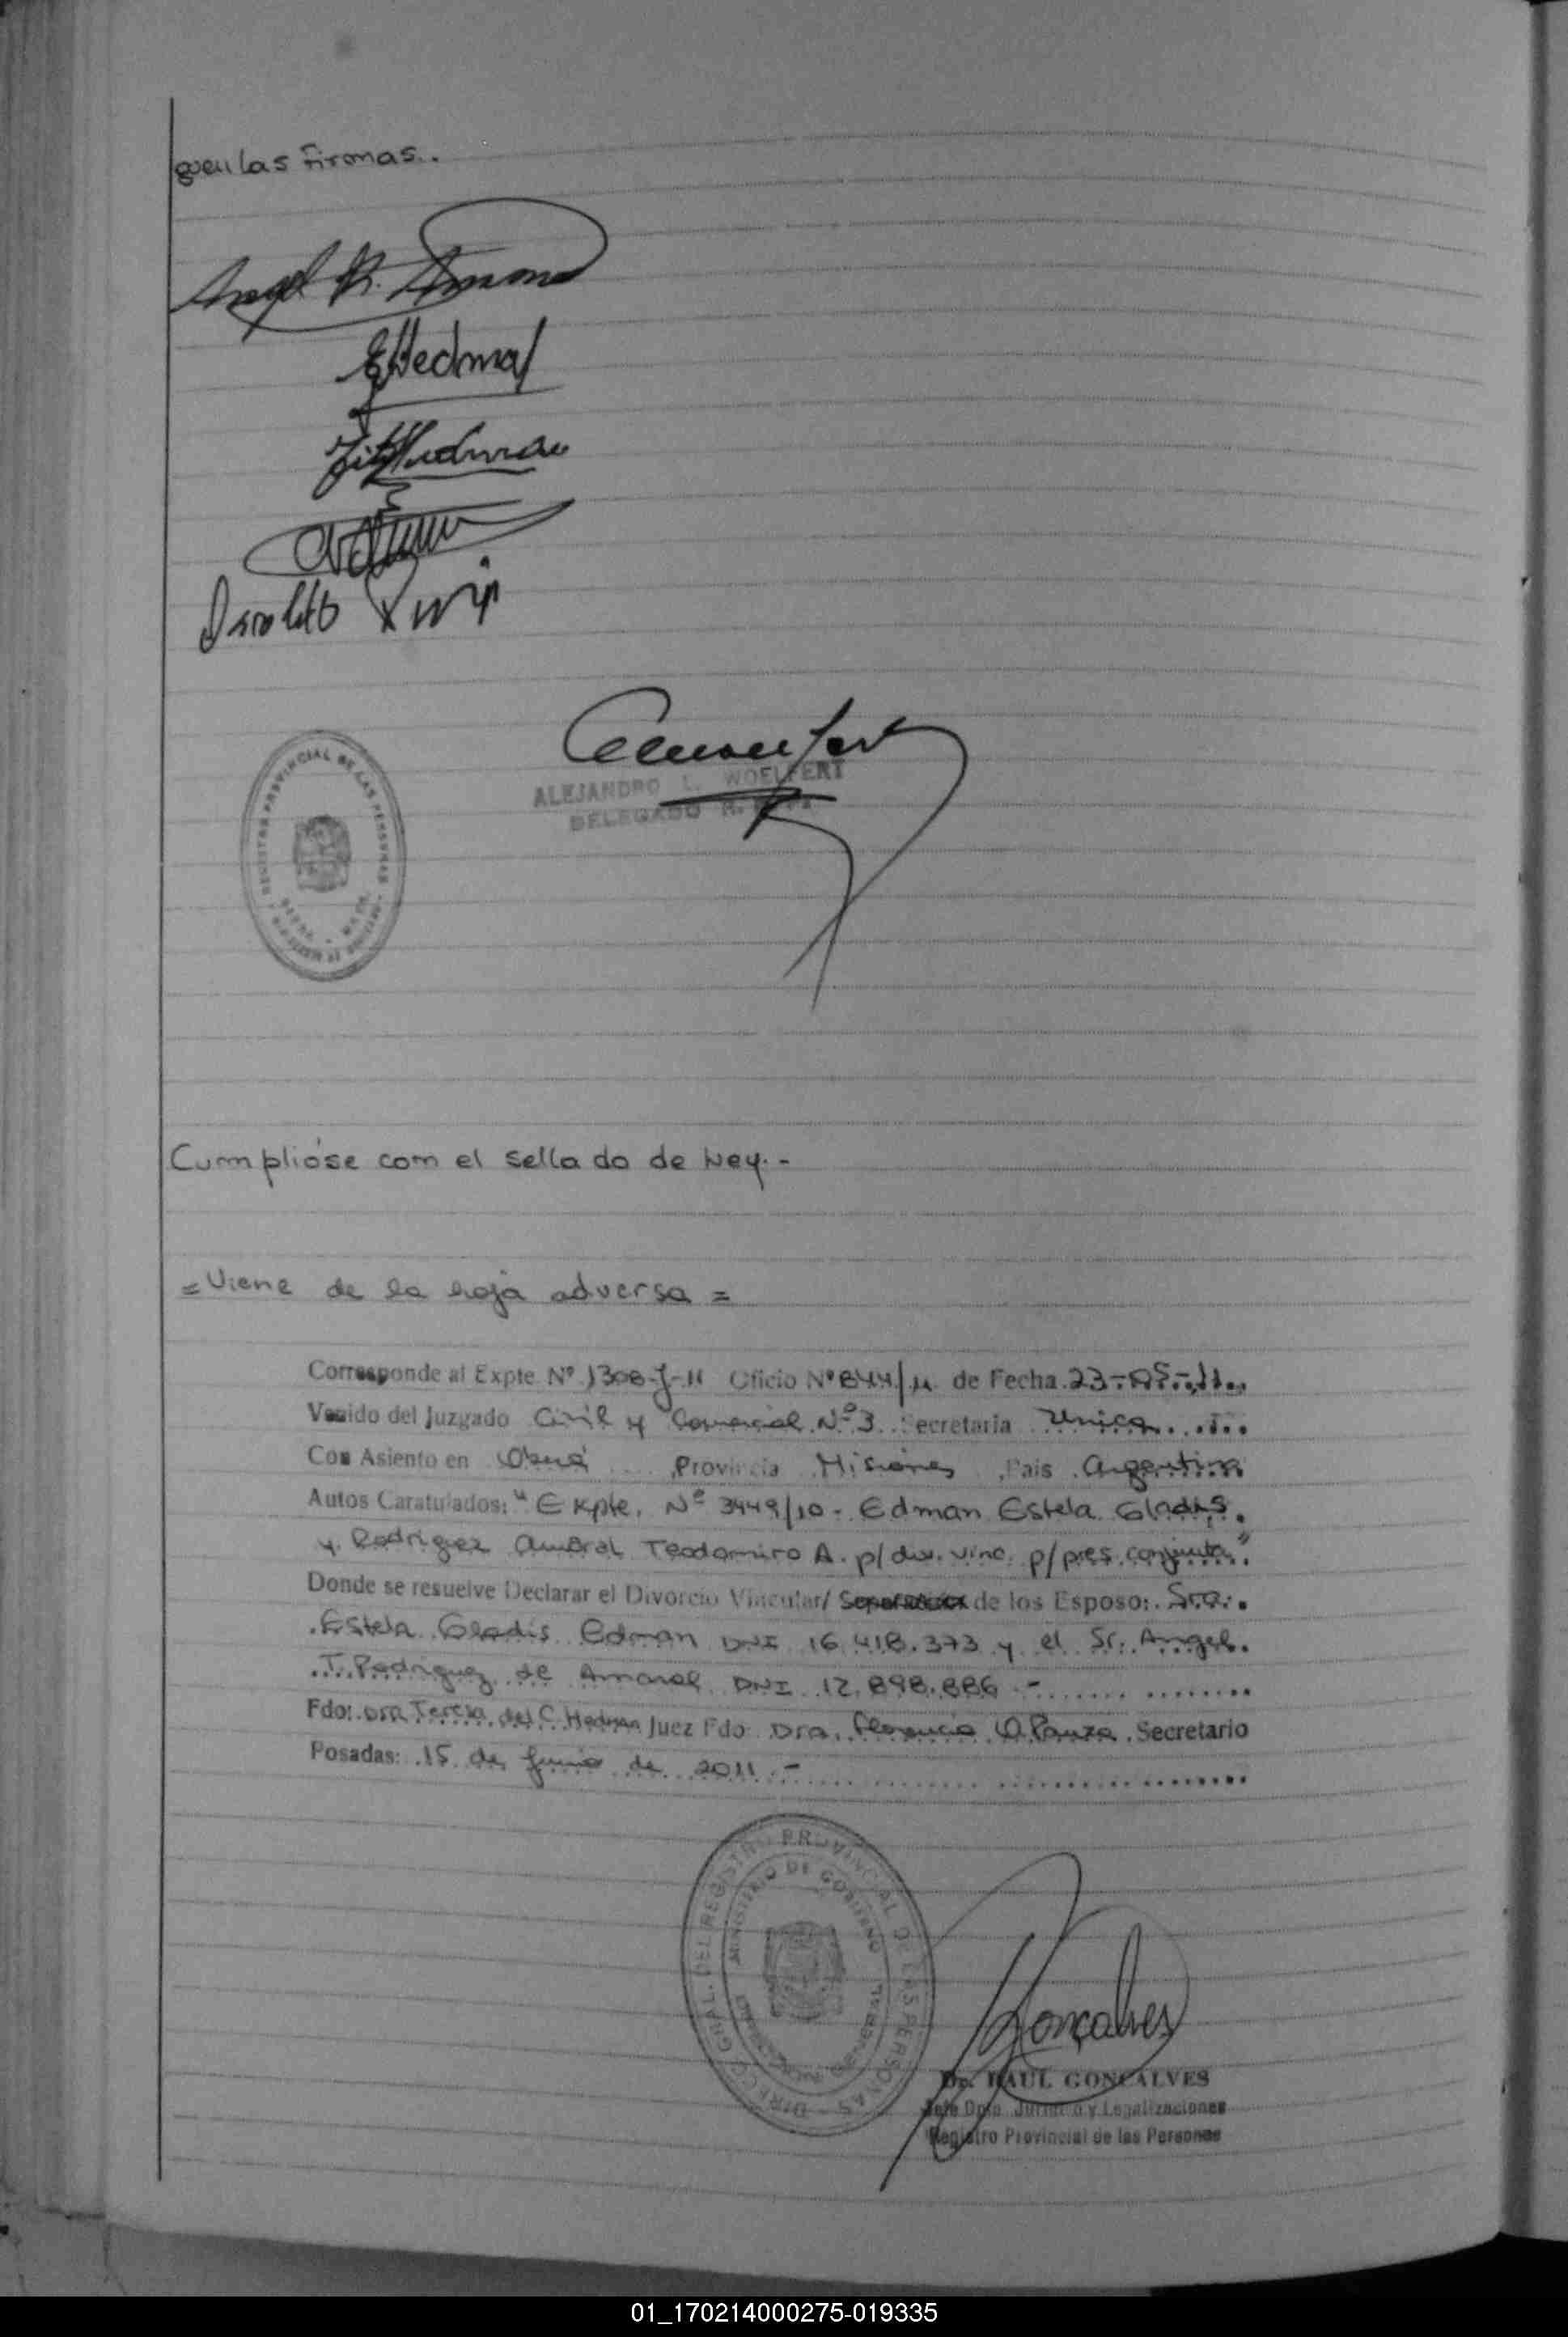 guen las Firmas..
Angel R.
Osvaldo
REGISTRO PROVINCIAL DE LAS PERSONAS
ALEJANDRO L. WOELFERT
DELEGADO R.
Cumplióse con el sellado de Ley.-
= Viene de la hoja adversa =
Corresponde al Expte Nº 1308-J-11 Oficio Nº 844/11 de Fecha 23-05-11
Venido del Juzgado Civil y Comercial Nº 3 Secretaria Unica
Con Asiento en Oberá Provincia Misiones Pais Argentina
Autos Caratulados: "Expte. Nº 3449/10 - Edman Estela Gladis
y Rodriguez Amaral Teodomiro A. p/ div. vinc. p/ pres conjunta"
Donde se resuelve Declarar el Divorcio Vincular/ de los Esposo: Sra.
Estela Gladis Edman DNI 16.418.373 y el Sr. Angel
T. Rodriguez de Amaral DNI 12.898.886 -
Fdo: Dra Teresa del C. Hedman Juez Fdo Dra. Florencia Secretario
Posadas: 15 de Junio de 2011 -
DIRECC. GRAL. DEL REGISTRO PROVINCIAL DE LAS PERSONAS
MINISTERIO DE GOBIERNO
Gonçalves
Dr. RAUL GONCALVES
Jefe Dpto. Jurídico y Legalizaciones
Registro Provincial de las Personas
01_170214000275-019335